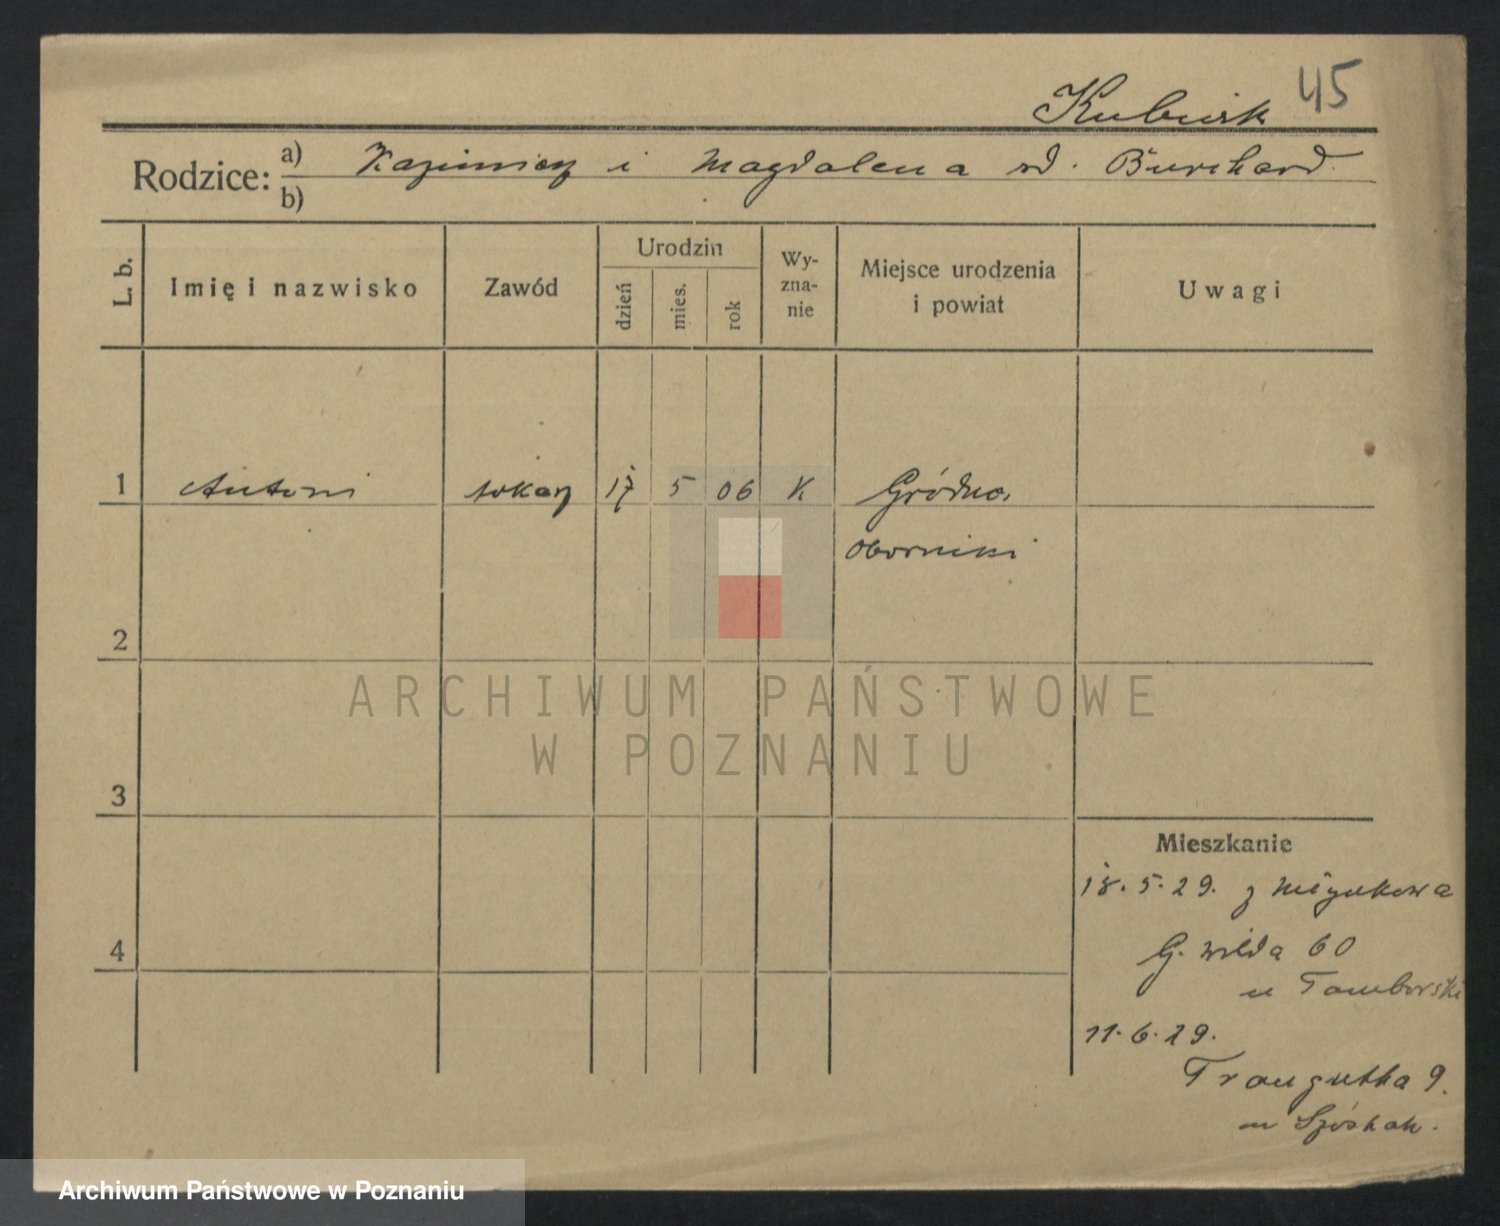 Kubiak 45
Rodzice: a) Kazimierz i Magdalena z d. Burchard
b)
L. b.
Imię i nazwisko
Zawód
Urodzin
dzień
mies.
rok
Wy-
zna-
nie
Miejsce urodzenia
i powiat
Uwagi
1 Antoni tokarz 17 5 06 K Gródna
Oborniki
2
ARCHIWUM PAŃSTWOWE
W POZNANIU
3
Mieszkanie
18.5.29. z
4
G. Wilda 60
u Tomborski
11.6.29.
Traugutta 9.
u
Archiwum Państwowe w Poznaniu